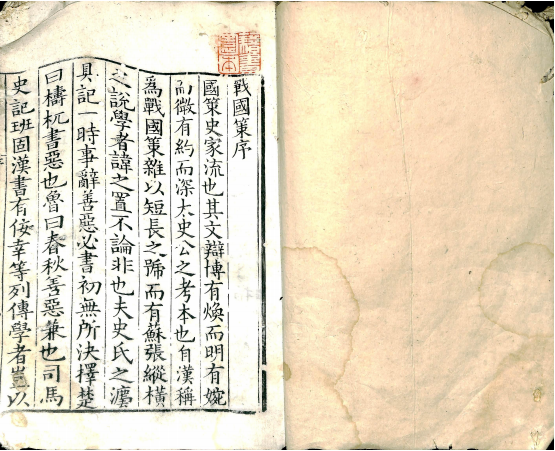 戰國策序
國策史家流也其文辯博有煥而明有婉
而微有約而深太史公之考本也自漢稱
爲戰國策雜以短長之號而有蘇張縱橫
之說學者諱之置不論非也夫史氏之灋
具記一時事辭善惡必書初無所決擇楚
曰檮杌書惡也魯曰春秋善惡兼也司馬
史記班固漢書有佞幸等列傳學者豈以